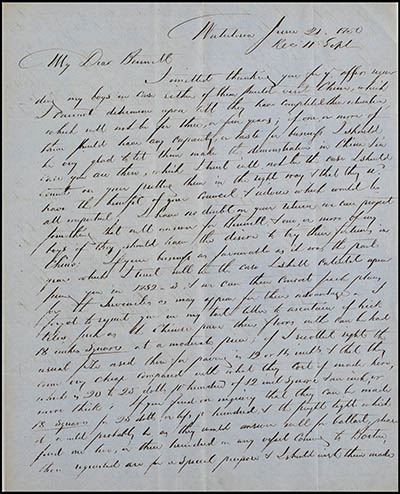 June 21. 1850
Rec 11 Sept
My Dear Bennett
I omitted thanking you for yr offer regar
ding my boys in case either of them should visit China, which
I cannot determine upon till they have completed their education
which will not be for three, or four years; if one or more of
them should have any capacity, or taste for business I should
be very glad to let them make the demonstration in China in
case you are there, which I trust will not be the case I should
count on your putting them in the right way & that they
have the benefit of your Counsel & advice which would be
all important. I have no doubt on your return we can project
something that will answer for Bennett & one or more of my
boys if they should have the desire to try their fortunes in
China. If your business is as favourable as it was the past
year which I trust will be the case I shall calculate upon
you in 1852-3 & we can then concert such plans
for the Juveniles as may appear for their advantage. I
forgot to request you in my last letter to ascertain if brick
tiles such as the Chinese pave their floors with can be had
18 inches square at a moderate price, if I recollect right the
usual tiles used there for paving is 12 or 14 inches & that they
come very cheap compared with what they cost if made here,
which is 20 to 25 dolls pr hundred of 12 inch square 1 an inch, or
more thick, if you find on enquiry that they can be made
18 square for 25 dolls or less pr hundred & the freight light which
it would probably be as they would answer well for ballast, please
send me two, or three hundred in any vessel coming to Boston,
those requested are for a special purpose & I should wish them made